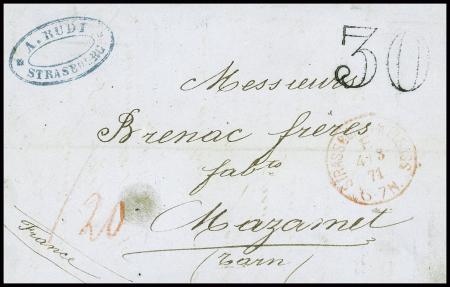 A. RUDI
STRASBOURG
30
Messieurs
Brenac frères
fabts
Mazamet
(Tarn)
20
France
4 3
71
6-7N.